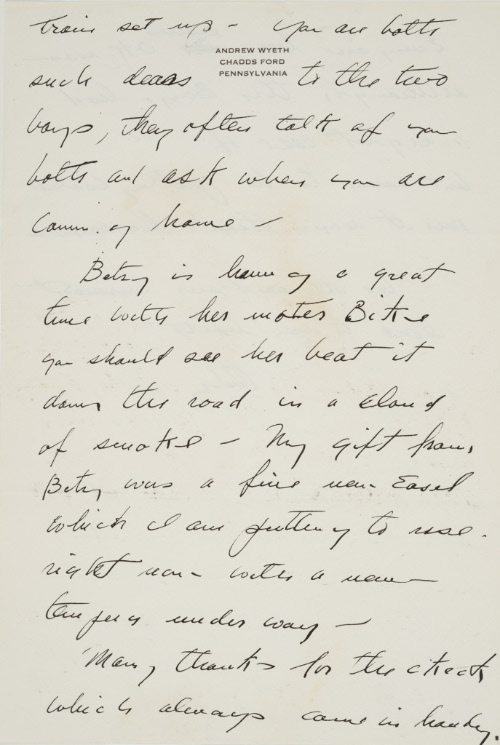 train set up - you are both
ANDREW WYETH
CHADDS FORD
PENNSYLVANIA
such dears to the two
boys, they often talk of you
both and ask when you are
coming home -
Betsy is having a great
time with her motor Bike
you should see her beat it
down the road in a cloud
of smoke - My gift from
Betsy was a fine new Easel
which I am putting to use
right now with a new
tempera under way -
Many thanks for the check
which always come in handy.